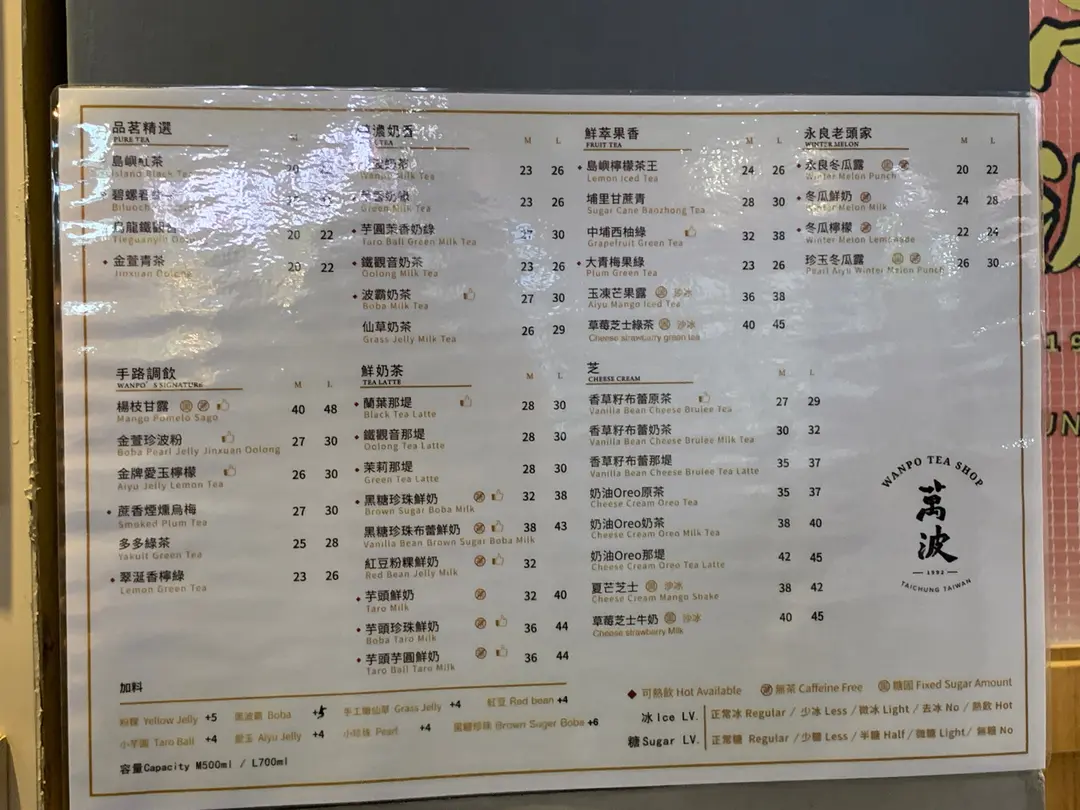 品茗精選
PURE TEA
島嶼紅茶 20
Island Black Tea
碧螺
Biluoch
鐵觀音 20 22
Tieguanyin
金萱青茶 20 22
Jinxuan Oolong
濃奶
TEA M L
奶茶 23 26
Milk Tea
23 26
Green Milk Tea
芋圓茉香奶綠 27 30
Taro Ball Green Milk Tea
鐵觀音奶茶 23 26
Oolong Milk Tea
波霸奶茶 27 30
Boba Milk Tea
仙草奶茶 26 29
Grass Jelly Milk Tea
鮮萃果香
FRUIT TEA M L
島嶼檸檬茶王 24 26
Lemon Iced Tea
埔里甘蔗青 28 30
Sugar Cane Baozhong Tea
中埔西柚綠 32 38
Grapefruit Green Tea
大青梅果綠 23 26
Plum Green Tea
玉凍芒果露 固 沙冰 36 38
Aiyu Mango Iced Tea
草莓芝士綠茶 固 沙冰 40 45
Cheese strawberry green tea
永良老頭家
WINTER MELON M L
永良冬瓜露 固 20 22
Winter Melon Punch
冬瓜鮮奶 24 28
Winter Melon Milk
冬瓜檸檬 22 24
Winter Melon Lemonade
珍玉冬瓜露 固 26 30
Pearl Aiyu Winter Melon Punch
手路調飲
WANPO'S SIGNATURE M L
楊枝甘露 固 40 48
Mango Pomelo Sago
金萱珍波粉 27 30
Boba Pearl Jelly Jinxuan Oolong
金牌愛玉檸檬 26 30
Aiyu Jelly Lemon Tea
蔗香煙燻烏梅 27 30
Smoked Plum Tea
多多綠茶 25 28
Yakult Green Tea
翠涎香檸綠 23 26
Lemon Green Tea
鮮奶茶
TEA LATTE M L
蘭葉那堤 28 30
Black Tea Latte
鐵觀音那堤 28 30
Oolong Tea Latte
茉莉那堤 28 30
Green Tea Latte
黑糖珍珠鮮奶 32 38
Brown Sugar Boba Milk
黑糖珍珠布蕾鮮奶 38 43
Vanilla Bean Brown Sugar Boba Milk
紅豆粉粿鮮奶 32
Red Bean Jelly Milk
芋頭鮮奶 32 40
Taro Milk
芋頭珍珠鮮奶 36 44
Boba Taro Milk
芋頭芋圓鮮奶 36 44
Taro Ball Taro Milk
芝
CHEESE CREAM M L
香草籽布蕾原茶 27 29
Vanilla Bean Cheese Brulee Tea
香草籽布蕾奶茶 30 32
Vanilla Bean Cheese Brulee Milk Tea
香草籽布蕾那堤 35 37
Vanilla Bean Cheese Brulee Tea Latte
奶油Oreo原茶 35 37
Cheese Cream Oreo Tea
奶油Oreo奶茶 38 40
Cheese Cream Oreo Milk Tea
奶油Oreo那堤 42 45
Cheese Cream Oreo Tea Latte
夏芒芝士 固 沙冰 38 42
Cheese Cream Mango Shake
草莓芝士牛奶 固 沙冰 40 45
Cheese strawberry Milk
WANPO TEA SHOP
萬波
1992
TAICHUNG TAIWAN
加料
粉粿 Yellow Jelly +5 黑波霸 Boba +5 手工嫩仙草 Grass Jelly +4 紅豆 Red bean +4
小芋圓 Taro Ball +4 愛玉 Aiyu Jelly +4 小珍珠 Pearl +4 黑糖珍珠 Brown Suger Boba +6
容量Capacity M500ml / L700ml
可熱飲 Hot Available 無茶 Caffeine Free 固 糖固 Fixed Sugar Amount
冰 Ice LV. 正常冰 Regular / 少冰 Less / 微冰 Light / 去冰 No / 熱飲 Hot
糖 Sugar LV. 正常糖 Regular / 少糖 Less / 半糖 Half / 微糖 Light / 無糖 No